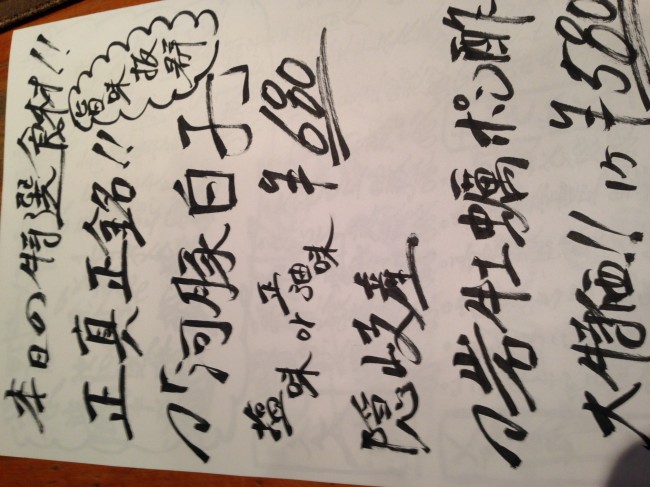 本日の特選食材!!
旨味抜群
正真正銘!!
「河豚白子」
塩味or正油味 ¥680
隠岐産
岩牡蠣ポン酢
大特価!! 1ケ ¥580